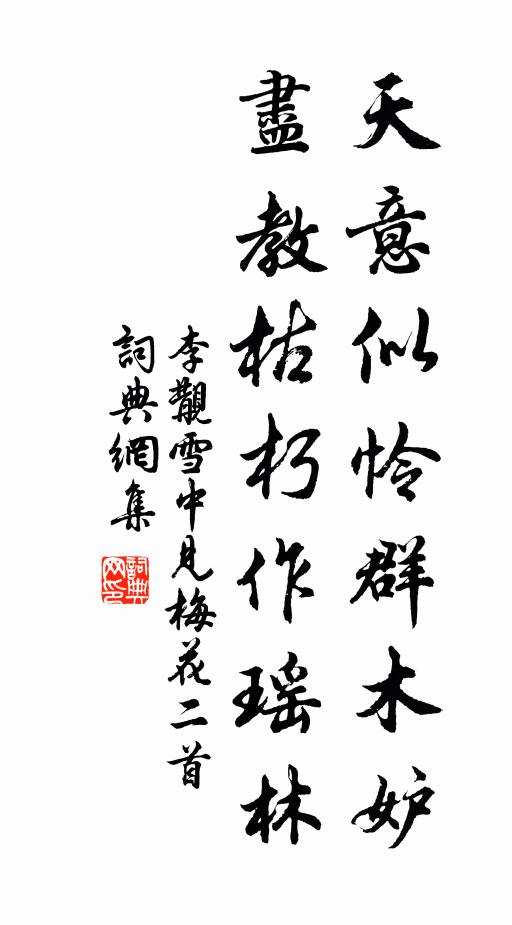 天意似怜群木妒
盡教枯朽作瑶林
李覯雪中見梅花二首
詞典網集
詞典网印